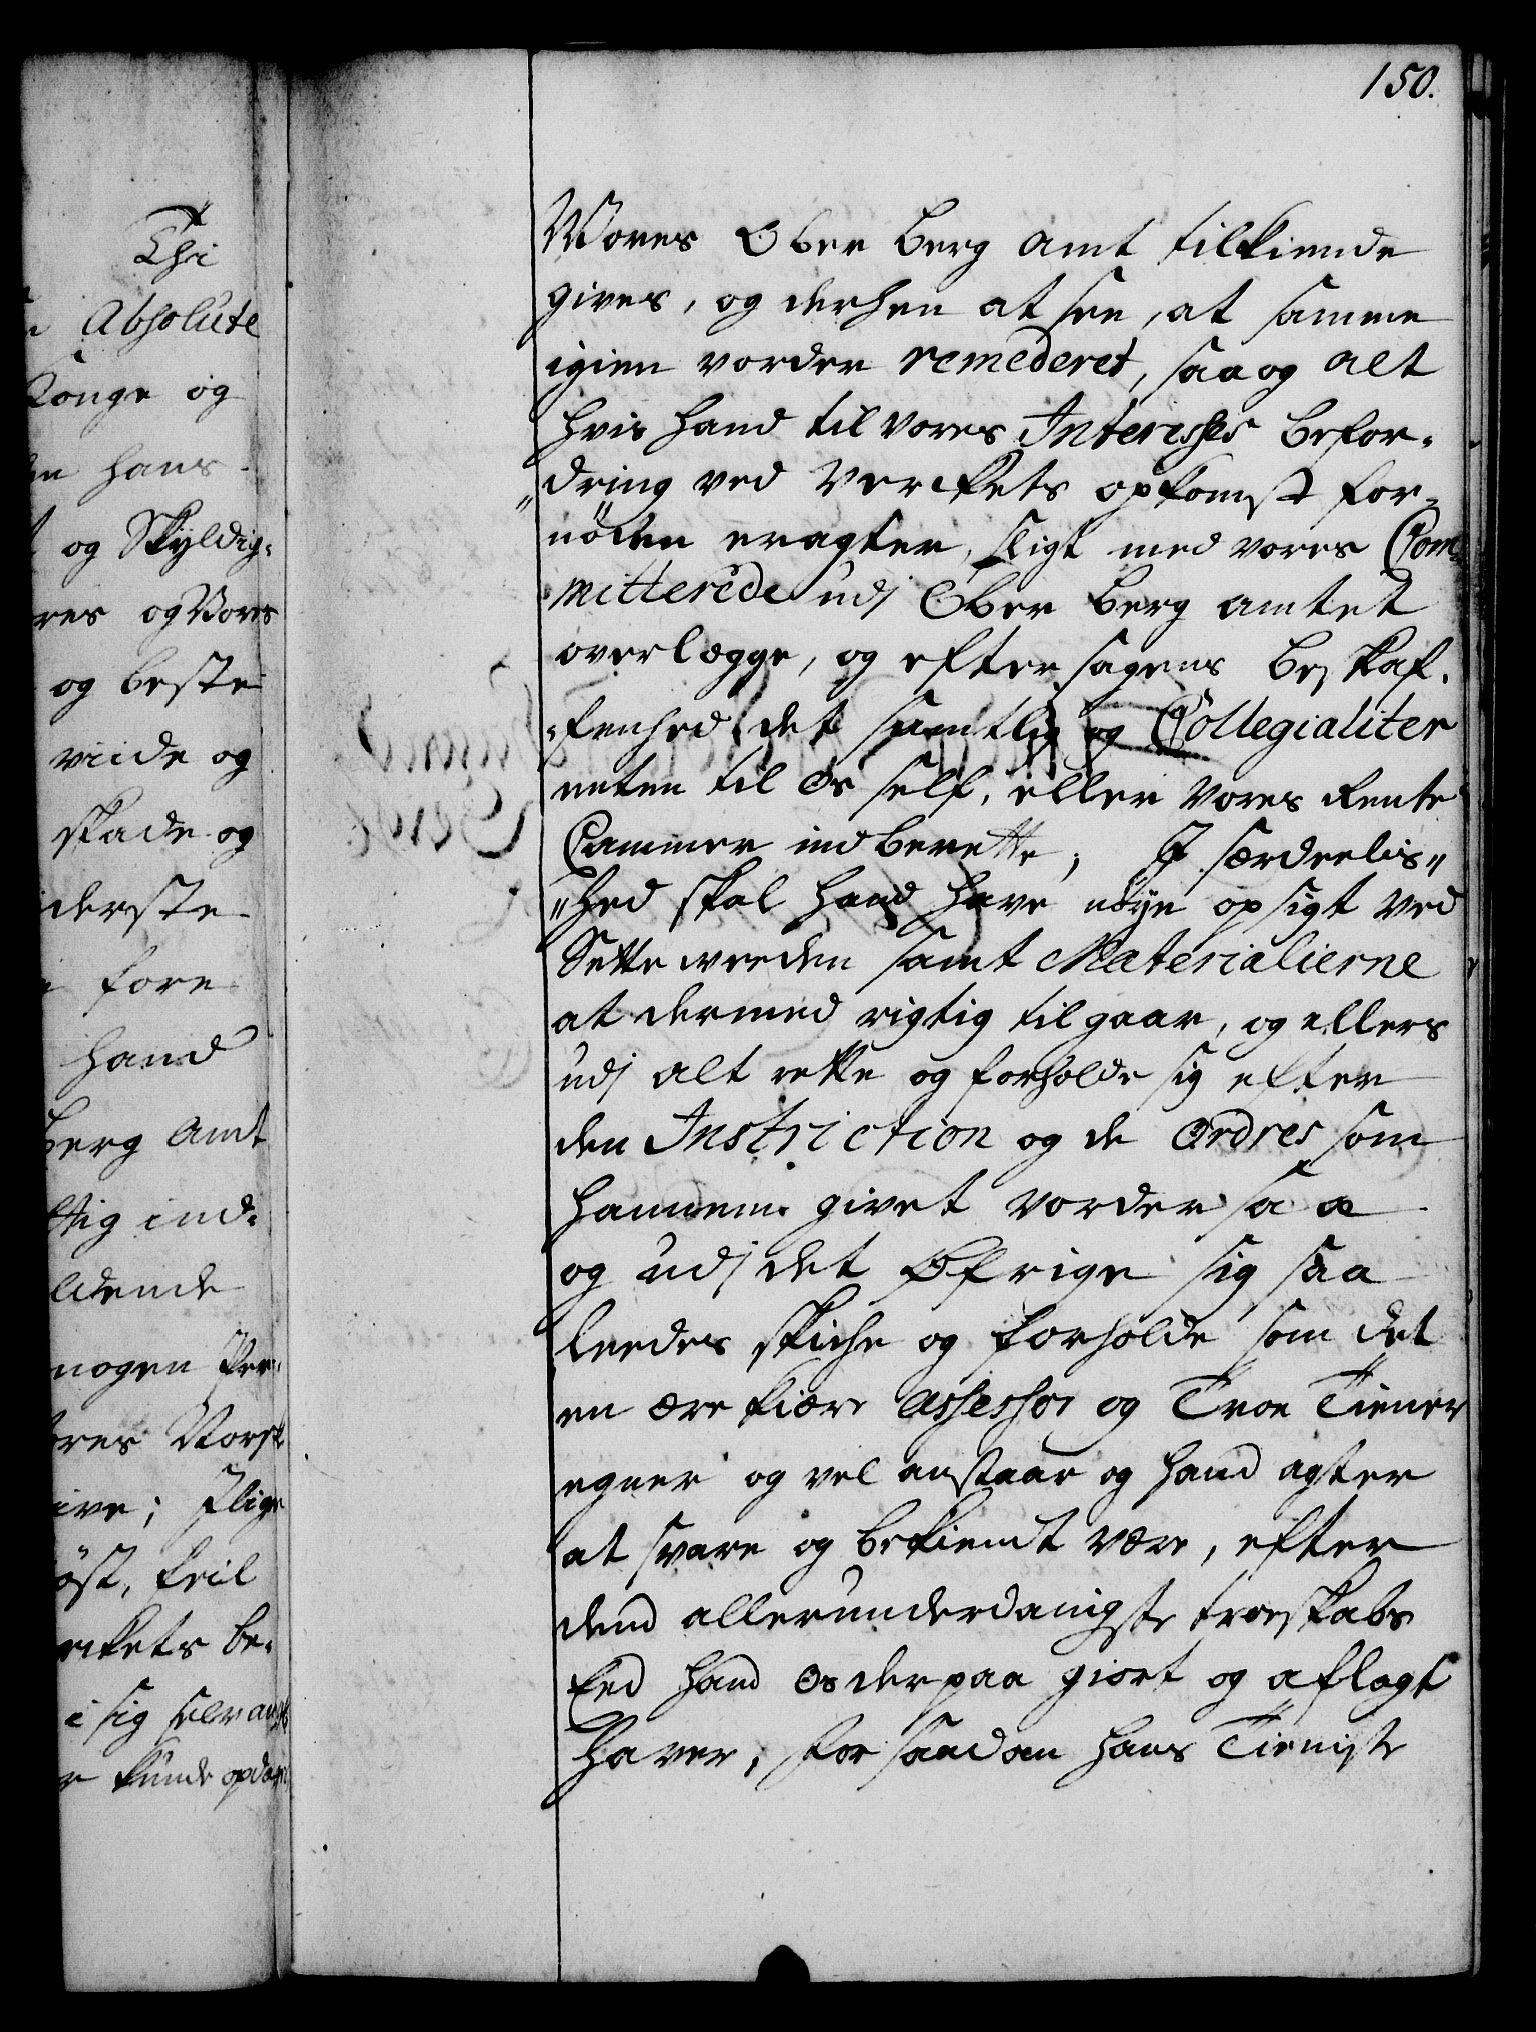 150.
Vores Ober Berg Amt tilkiende
gives, og derhen at see, at samme
igien vorder remederet, saa og alt
hvis hand til vores Interesses befor-
dring ved Verckets opkomst for-
nöden eragter, sligt med vores Com-
mitterede udj Ober Berg Amtet
overlegge, og efter sagens beskaf-
fenhed det samtlig og Collegialiter
enten til Os self, eller Vores Rente
Cammer indberette; I særdeelis-
hed skal hand have nöye opsigt ved
at dermed rigtig tilgaar, og ellers
udj alt rette og forholde sig efter
den Instruction og de Ordres som
hannem givet vorder saa
og udj det Öfrige sig saa
leedes skiche og forholde som det
en ære kiær Assessor og Troe Tiener
egner og vel anstaar og hand agter
at svare og bekiendt være, efter
dend allerunderdanigste troeskabs
Eed hand Os derpaa giort og aflagt
haver, for saadan hans Tieniste
Thi
Absolute
Konge og
hans
og Skyldig-
res og Vores
og beste
viide og
skade og
derste
fore
hand
Berg Amt
tig ind-
ldende
nogen
ive; Ilige
öst, feil
rckets be-
i sig selv
kunde